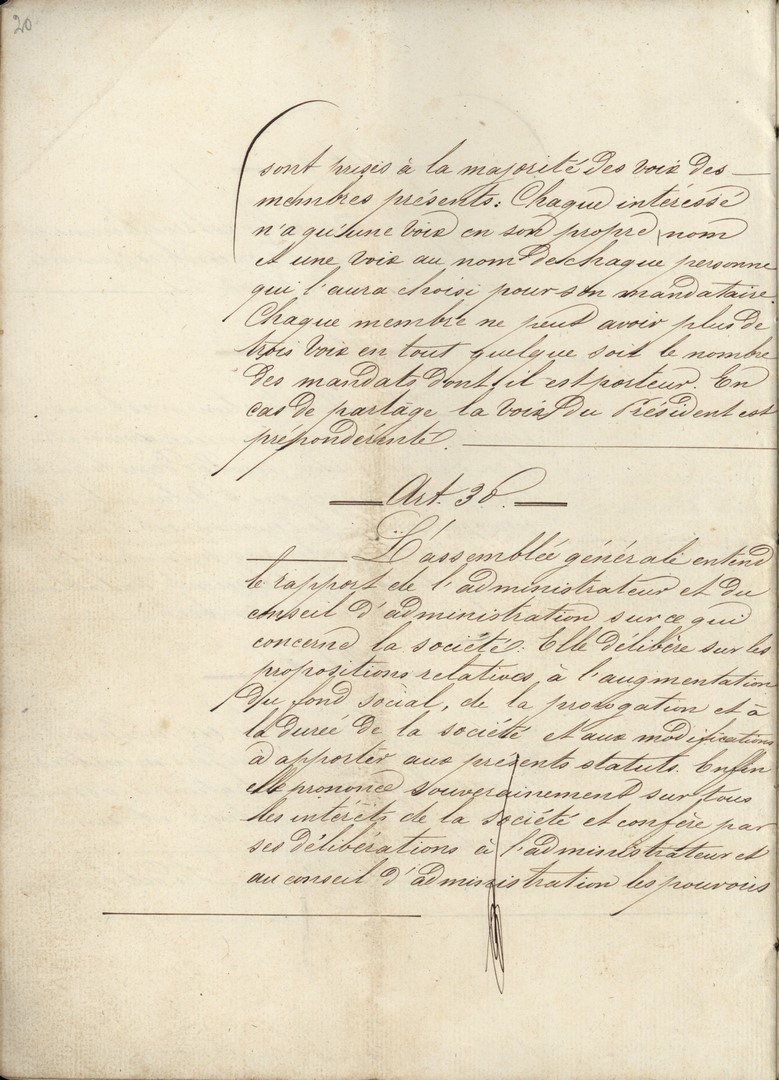 20
sont prises à la majorité des voix des
membres présents: Chaque intéressé
n'a qu'une voix en son propre nom
et une voix au nom de chaque personne
qui l'aura choisi pour son mandataire.
Chaque membre ne peut avoir plus de
trois voix en tout quelque soit le nombre
des mandats dont il est porteur. En
cas de partage la voix du Président est
prépondérente.
Art. 30.
L'assemblée générale entend
le rapport de l'administrateur et du
conseil d'administration sur ce qui
concerne la société. Elle délibère sur les
propositions relatives à l'augmentation
du fond social, de la prorogation et à
la durée de la société et aux modifications
à apporter aux présents statuts. Enfin
elle prononce souverainement sur tous
les intérêts de la société et confère par
ses délibérations à l'administrateur et
au conseil d'administration les pouvoirs